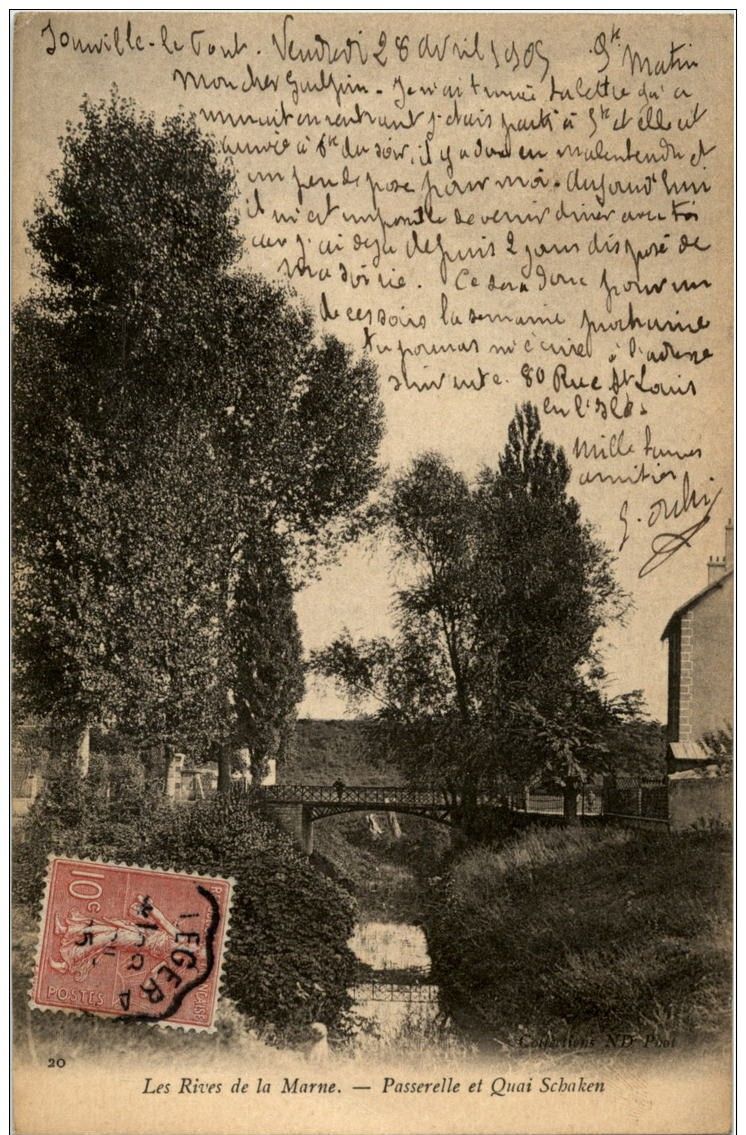 Joinville-le Pont. Vendredi 28 avril 1905 9h Matin
Mon cher Galpin - Je n'ai trouvé ta lettre qu'a
minuit en rentrant j'étais parti à 5h et elle est
arrivée à 6h du soir, il y a donc eu malentendu et
un peu de pose pour moi. Aujourd'hui
il m'est impossible de venir diner avec toi
car j'ai deja depuis 2 jours disposé de
ma soirée. Ce sera donc pour un
de ces soirs la semaine prochaine
tu pourras m'écrire à l'adresse
suivante. 80 Rue St Louis
en l'Isle.
Mille bonnes
amitiés
10c
POSTES
FRANÇAISE
LEGER A
Collections ND Phot
20
Les Rives de la Marne. — Passerelle et Quai Schaken